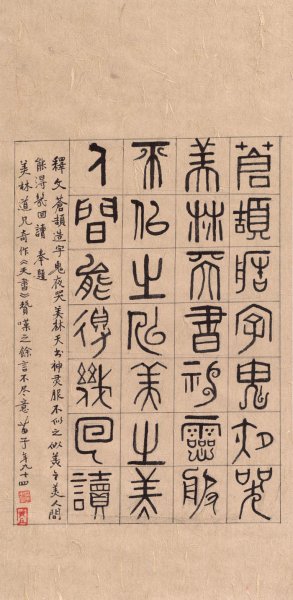 蒼頡造字鬼夜哭
美林天書神靈服
不似之似美之美
人間能得幾回讀
釋文 蒼頡造字鬼夜哭美林天书神灵服不似之似美之美人間
能得幾回讀 奉題
美林道兄奇作《天書》贊嘆之餘言不尽意 苗子 年九十四